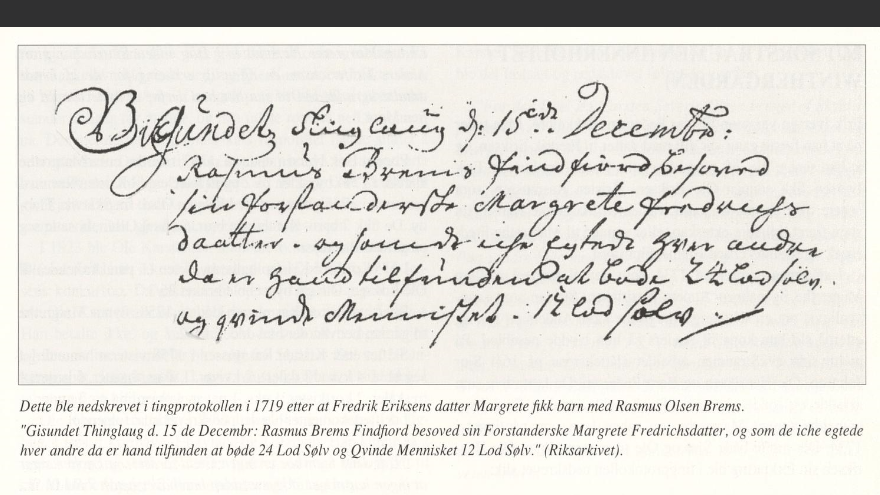 Gisundetz thinglaug d: 15de: Decembr:
Rasmus Brems Findfiord besoved
sin forstanderske Margrete Fredrichs
daatter. og som de iche egtede hver andre
da er hand tilfunden at bøde 24 lod sølv.
og qvinde Mennisket. 12 lod sølv
Dette ble nedskrevet i tingprotokollen i 1719 etter at Fredrik Eriksens datter Margrete fikk barn med Rasmus Olsen Brems.
"Gisundet Thinglaug d. 15 de Decembr: Rasmus Brems Findfiord besoved sin Forstanderske Margrete Fredrichsdatter, og som de iche egtede
hver andre da er hand tilfunden at bøde 24 Lod Sølv og Qvinde Mennisket 12 Lod Sølv." (Riksarkivet).